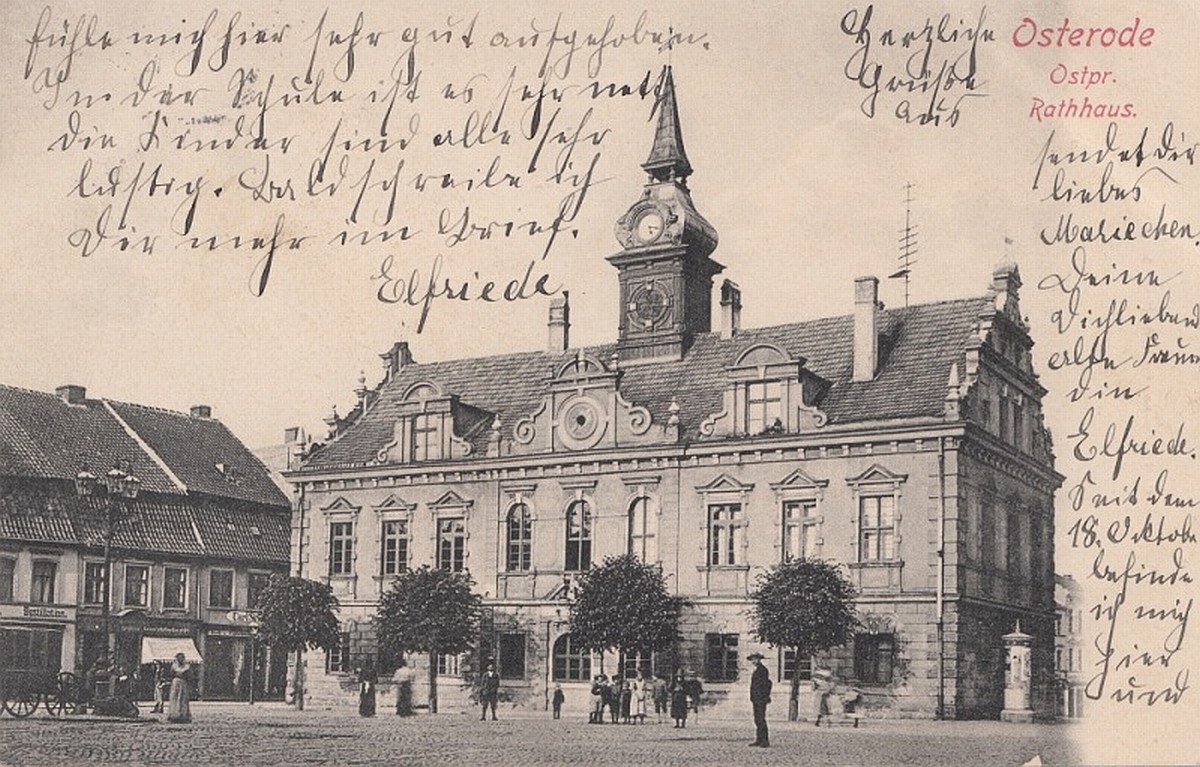 Herzliche
Grüße
aus
Osterode
Ostpr.
Rathhaus.
sendet Dir
liebes
Mariechen,
Deine
Dichlieben
alte Freun
din
Elfriede.
Seit dem
18. Oktobe
befinde
ich mich
hier
und
fühle mich hier sehr gut aufgehoben.
In der Schule ist es sehr nett
die Kinder sind alle sehr
lustig. Bald schreibe ich
Dir mehr im Brief.
Elfriede